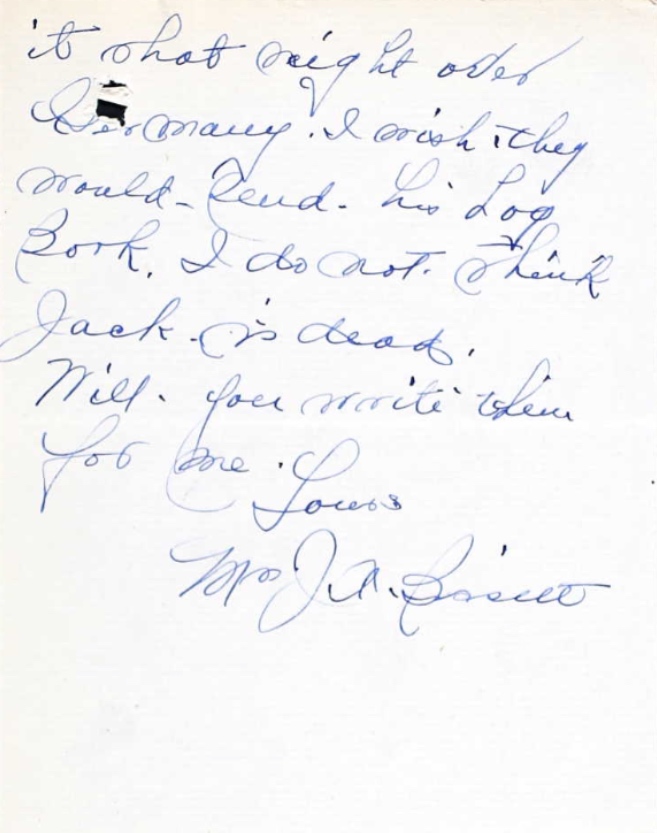 it that night over
Germany. I wish they
would - send. his Log
Book. I do not. think
Jack. is dead.
Will. you write them
for me.
Yours
Mrs J. A. Bissett